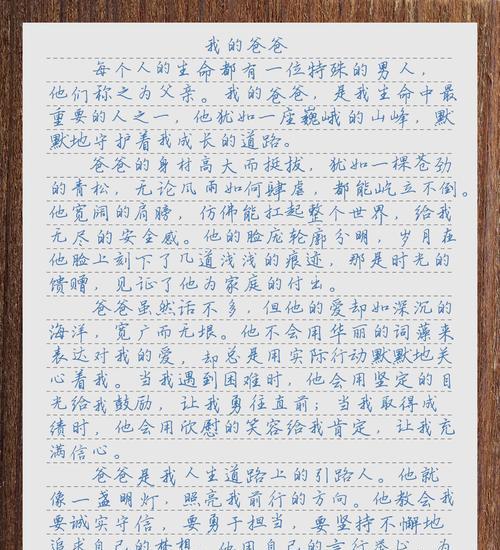 我的爸爸
每个人的生命都有一位特殊的男人，
他们称之为父亲。我的爸爸，是我生命中最
重要的人之一，他犹如一座巍峨的山峰，默
默地守护着我成长的道路。
爸爸的身材高大而挺拔，犹如一棵苍劲
的青松，无论风雨如何肆虐，都能屹立不倒。
他宽阔的肩膀，仿佛能扛起整个世界，给我
无尽的安全感。他的脸庞轮廓分明，岁月在
他脸上刻下了几道浅浅的痕迹，那是时光的
馈赠，见证了他为家庭的付出。
爸爸虽然话不多，但他的爱却如深沉的
海洋，宽广而无垠。他不会用华丽的词藻来
表达对我的爱，却总是用实际行动默默地关
心着我。当我遇到困难时，他会用坚定的目
光给我鼓励，让我勇往直前；当我取得成
绩时，他会用欣慰的笑容给我肯定，让我充
满信心。
爸爸是我人生道路上的引路人。他就
像一盏明灯，照亮我前行的方向。他教会我
要诚实守信，要勇于担当，要坚持不懈地
追求自己的梦想。他用自己的言行举止，为